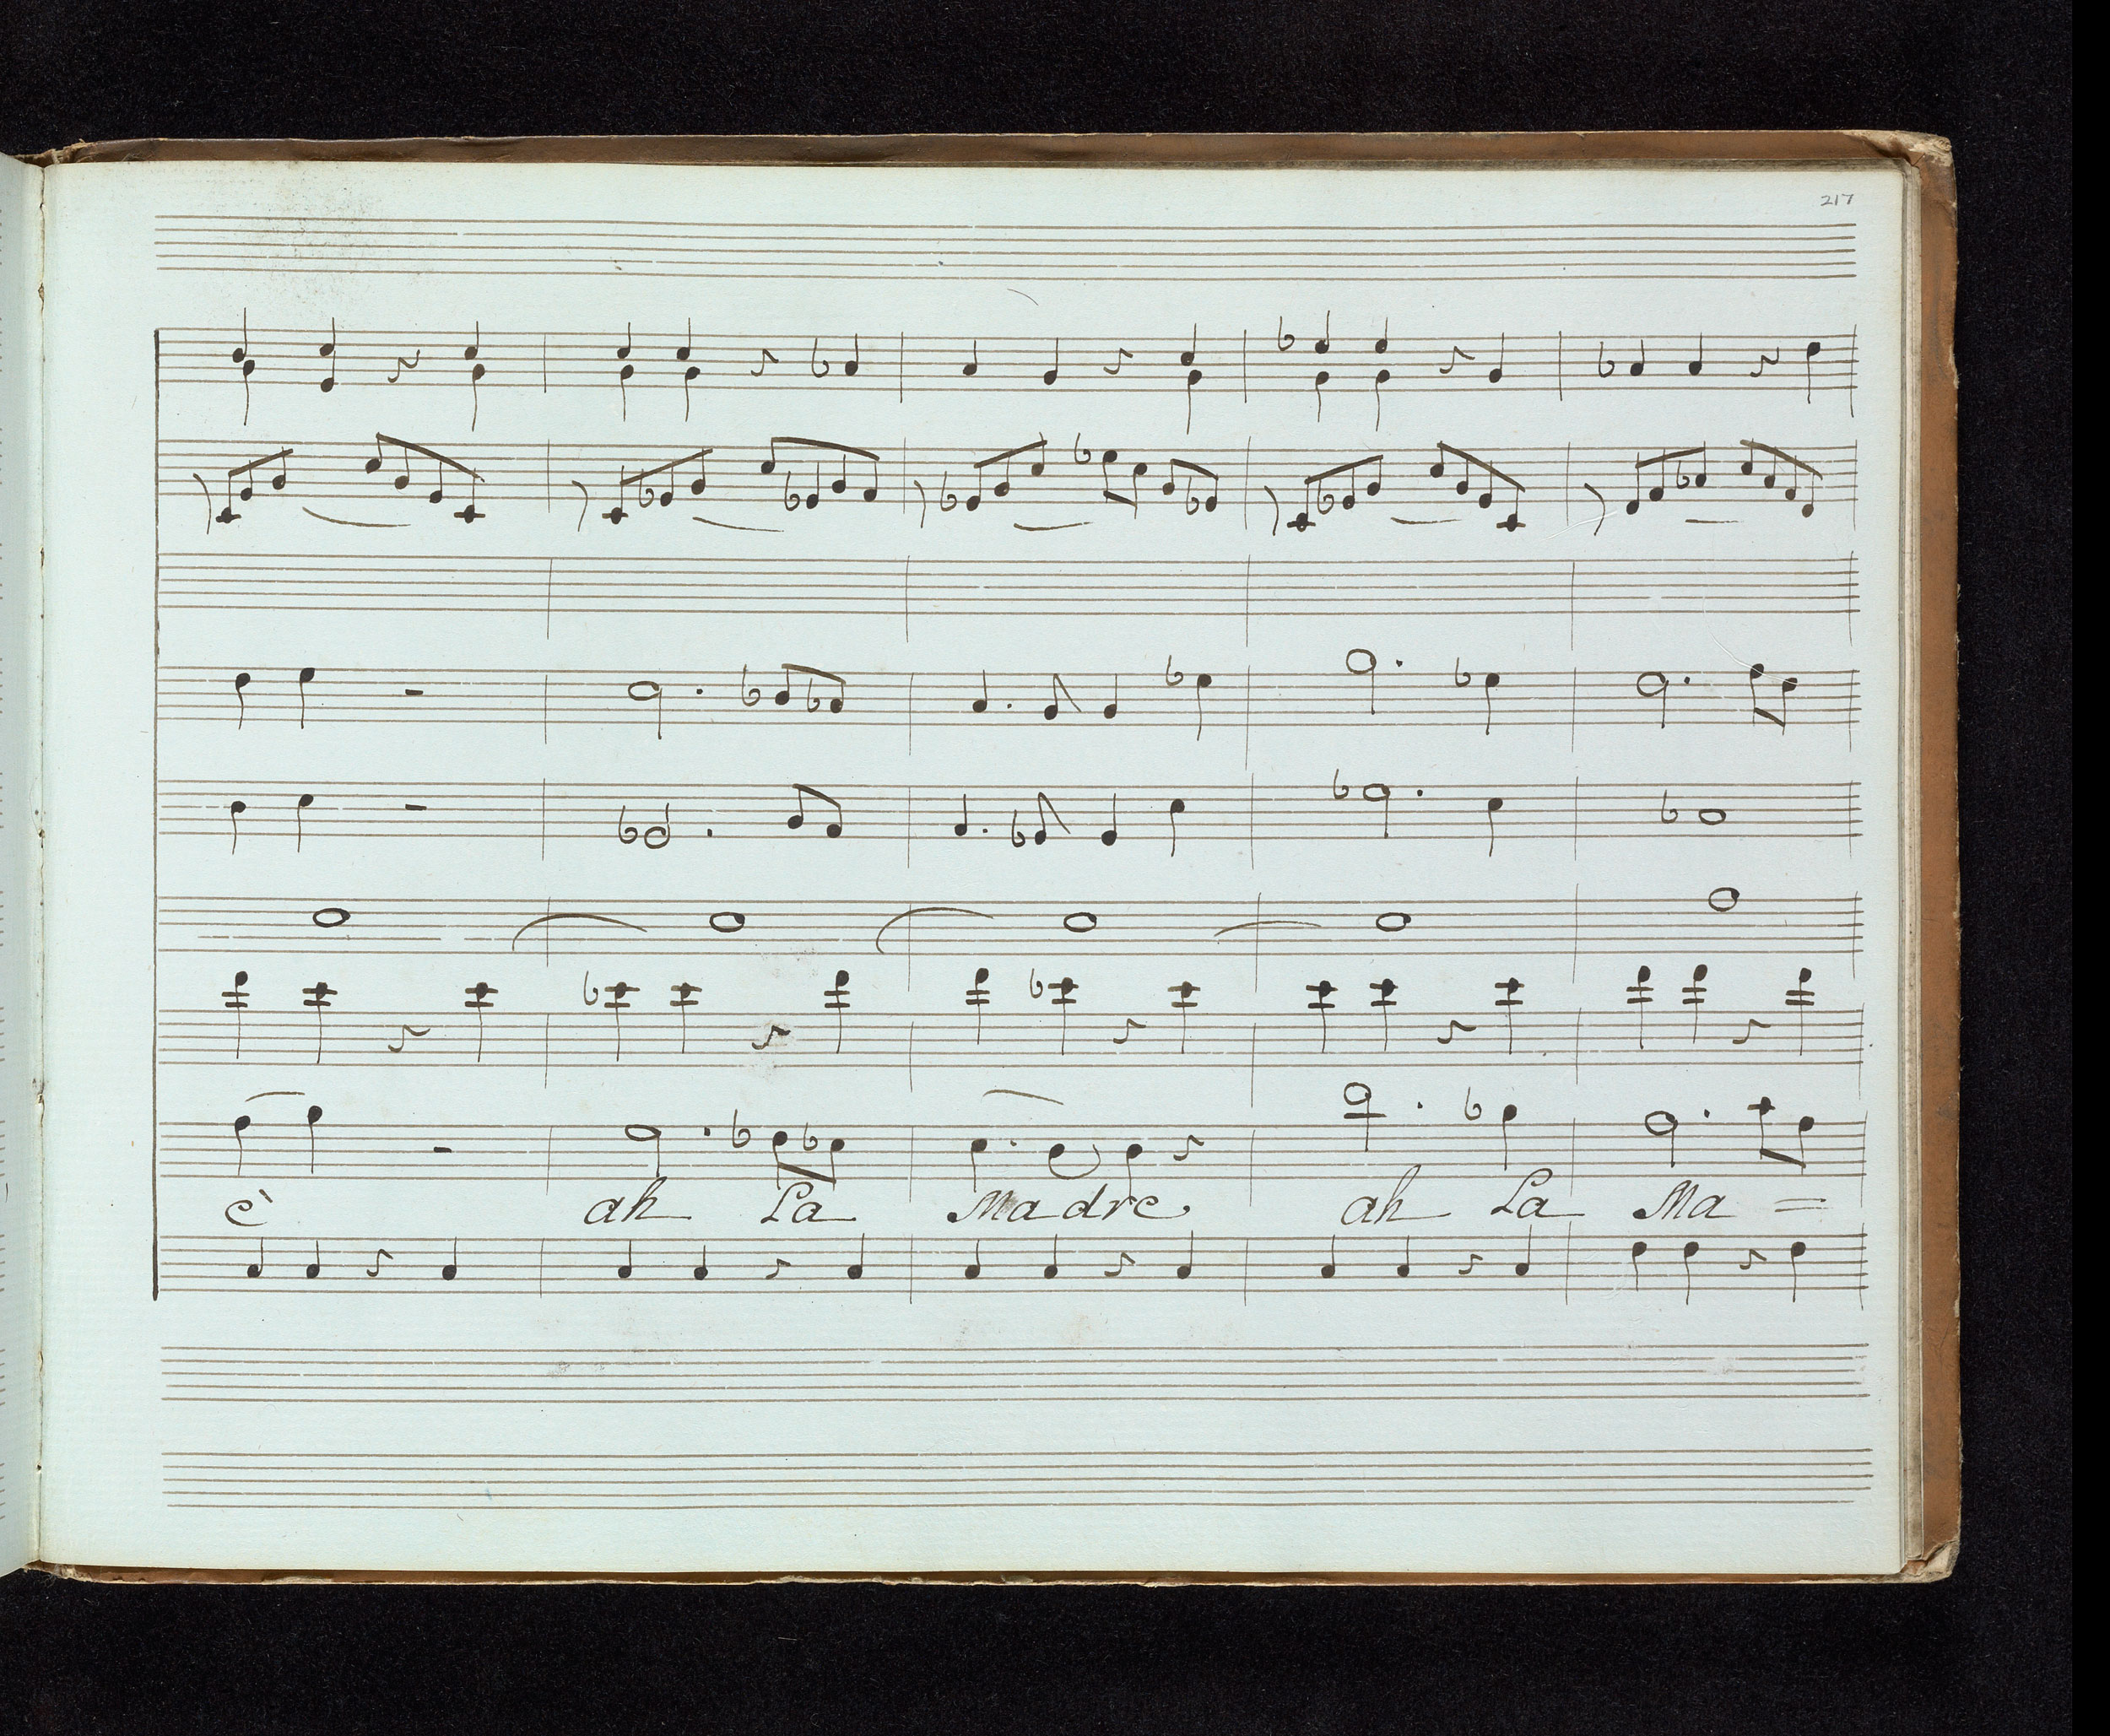 217
è ah La Madre ah La Ma =